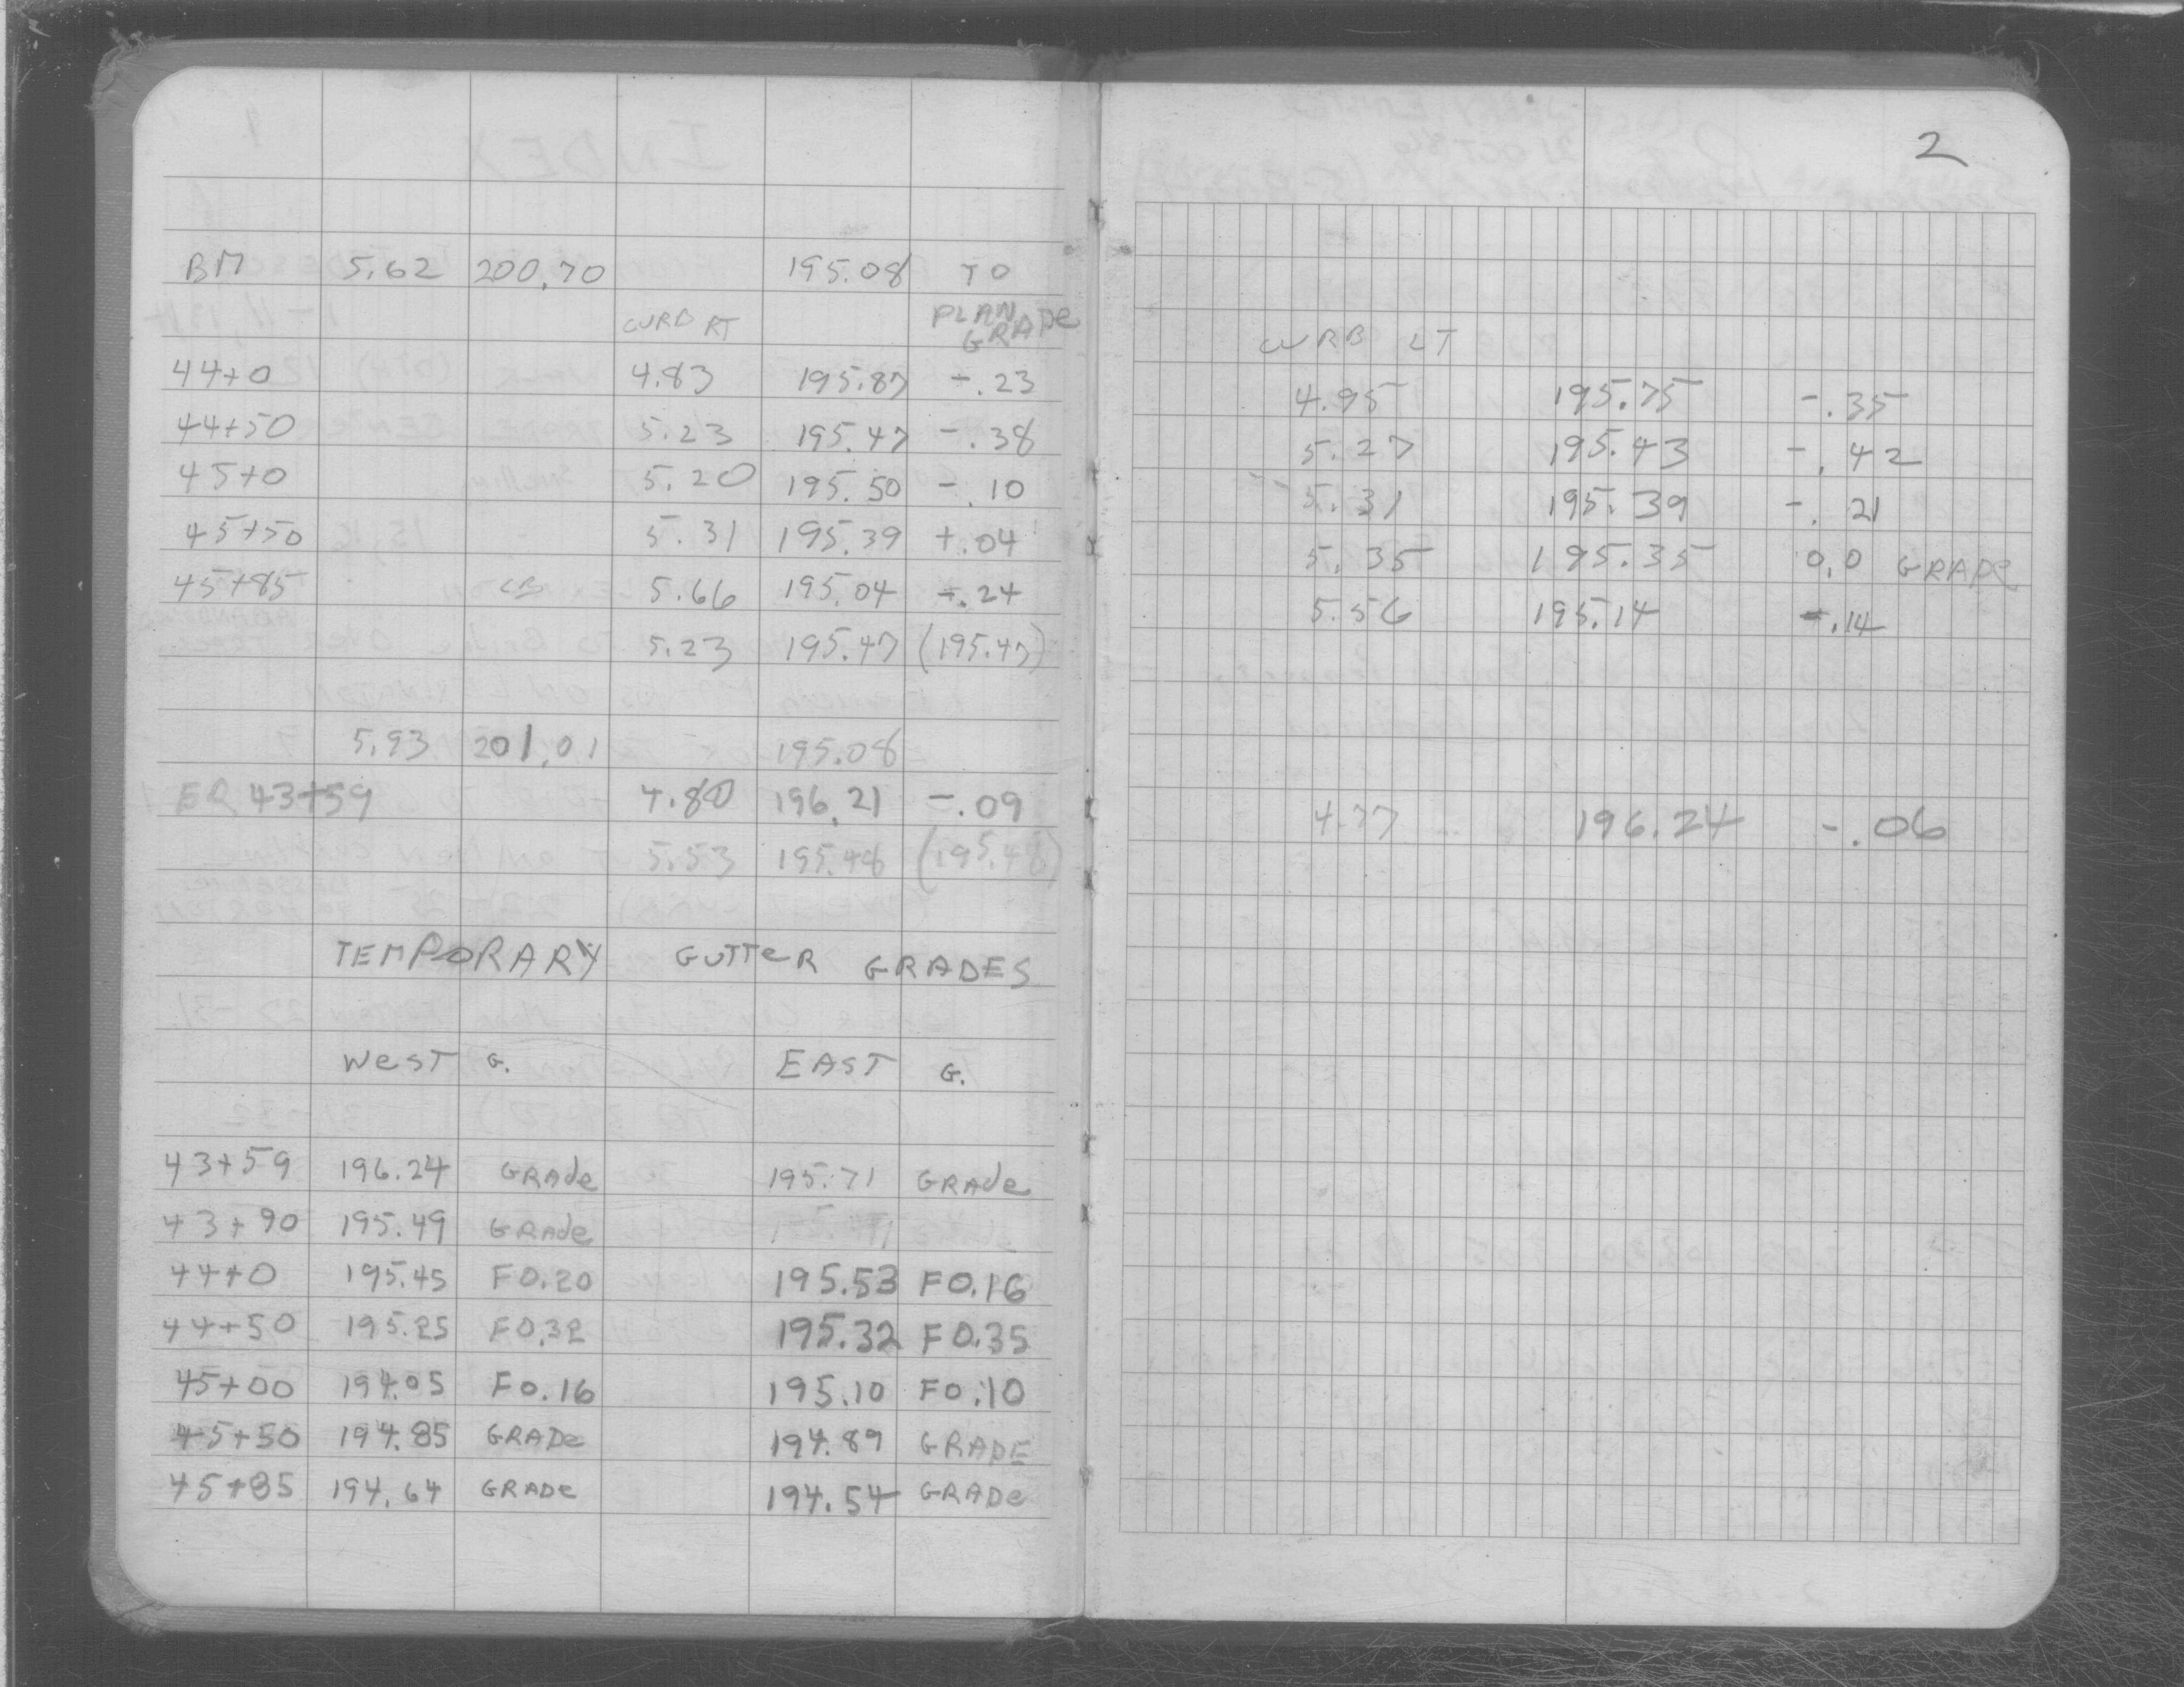 2
BM 5.62 200.70 195.08 TO
CURB RT PLAN GRADE
CURB LT
44+0 4.83 195.87 -.23 4.95 195.75 -.35
44+50 5.23 195.47 -.38 5.27 195.43 -.42
45+0 5.20 195.50 -.10 5.31 195.39 -.21
45+50 5.31 195.39 +.04 5.35 195.35 0.0 GRADE
45+85 CB 5.66 195.04 -.24 5.56 195.14 -.14
5.23 195.47 (195.47)
5.93 201.01 195.08
ER 43+59 4.80 196.21 -.09 4.77 196.24 -.06
5.53 195.48 (195.48)
TEMPORARY GUTTER GRADES
WEST G. EAST G.
43+59 196.24 GRADE 195.71 GRADE
43+90 195.49 GRADE
44+0 195.45 F0.20 195.53 F0.16
44+50 195.25 F0.32 195.32 F0.35
45+00 194.05 F0.16 195.10 F0.10
45+50 194.85 GRADE 194.89 GRADE
45+85 194.64 GRADE 194.54 GRADE